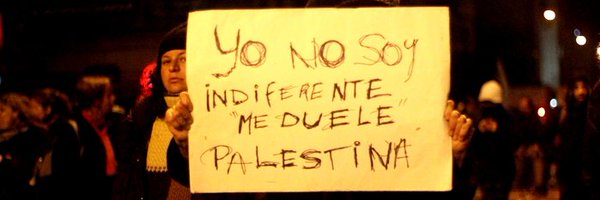 YO NO SOY
INDIFERENTE
"ME DUELE"
PALESTINA